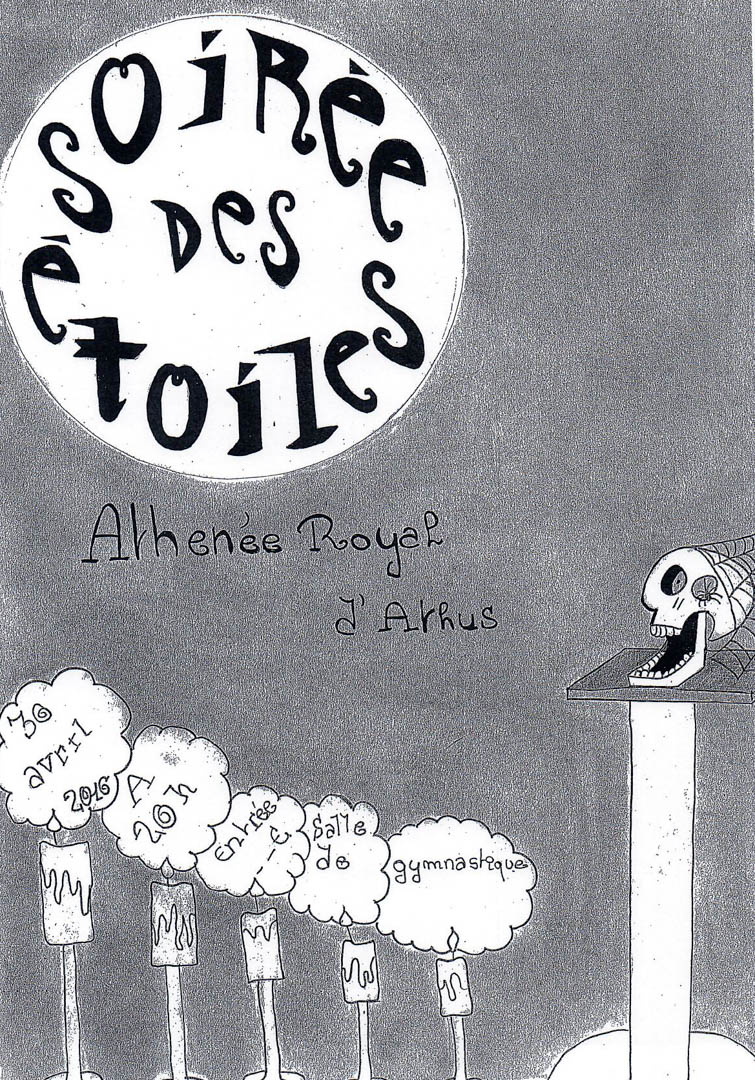 Soirée
des
étoiles
Athenée Royal
d'Athus
30
avril
2016
A
20h
Entrée
--€
Salle
de
gymnastique